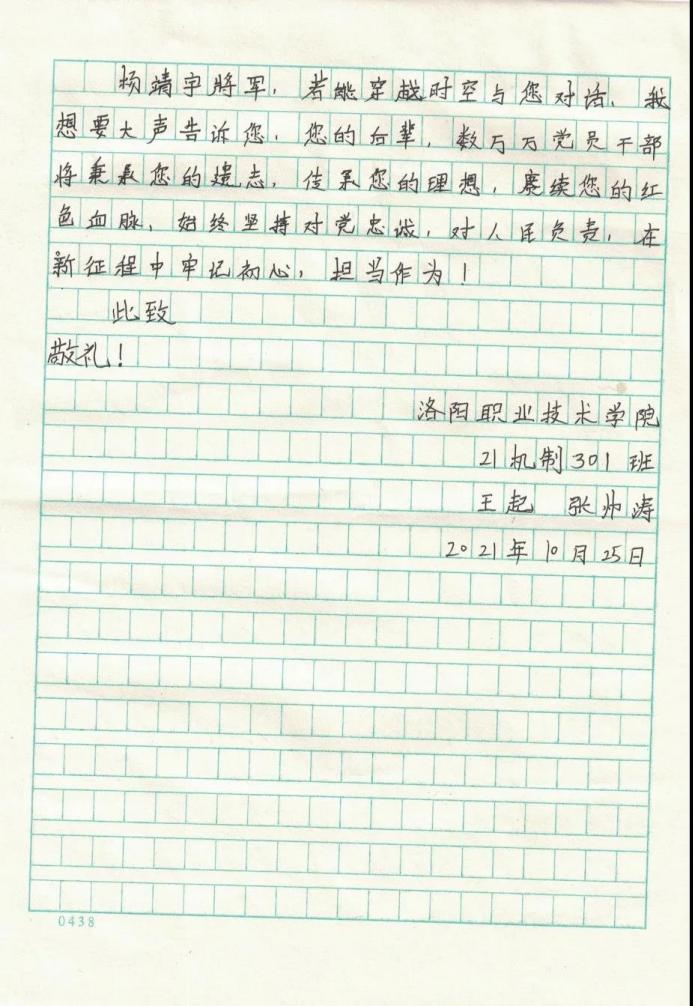 杨靖宇将军，若能穿越时空与您对话，我
想要大声告诉您，您的后辈，数万万党员干部
将秉承您的遗志，传承您的理想，赓续您的红
色血脉，始终坚持对党忠诚，对人民负责，在
新征程中牢记初心，担当作为！
此致
敬礼！
洛阳职业技术学院
21机制301班
王起 张帅涛
2021年10月25日
0438